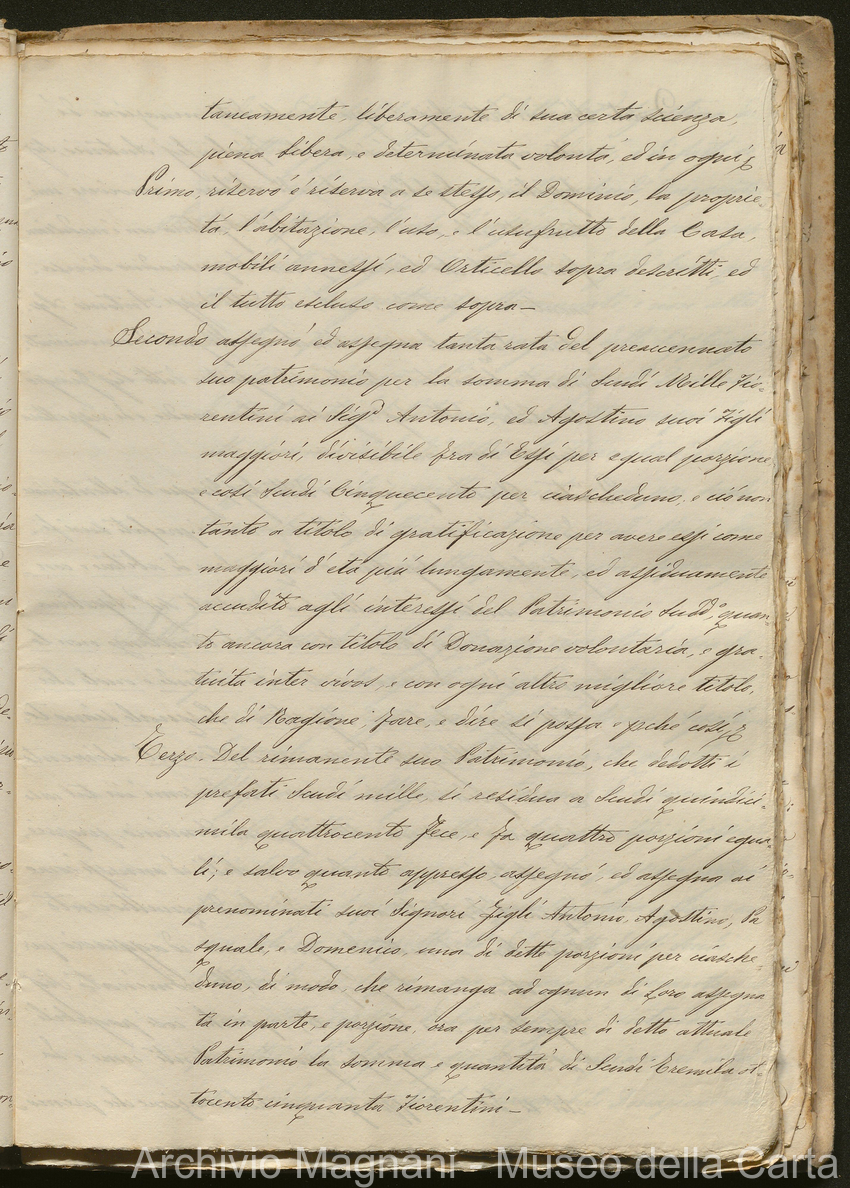 taneamente, liberamente di sua certa scienza,
piena libera, e determinata volontà, ed in ogni
Primo, riservò e riserva a se stesso, il Dominio, la proprie-
tà, l'abitazione, l'uso, e l'usufrutto della Casa,
mobili annessi, ed Orticello sopra descritti, ed
il tutto escluso come sopra—
Secondo assegnò ed assegna tanta rata del preaccennato
suo patrimonio per la somma di Scudi Mille Fio-
rentini ai Sig.ri Antonio, ed Agostino suoi Figli
maggiori, divisibile fra di Essi per egual porzione
e così Scudi Cinquecento per ciascheduno, e ciò non
tanto a titolo di gratificazione per avere essi come
maggiori d'età più lungamente, ed assiduamente
accudito agli interessi del Patrimonio Sudd.o, quan-
to ancora con titolo di Donazione volontaria, e gra-
tuita inter vivos, e con ogni altro migliore titolo,
che di Ragione, Fare, e dire si possa perché così
Terzo. Del rimanente suo Patrimonio, che dedotti i
prefati Scudi mille, si residua a Scudi quindici-
mila quattrocento Fece, e Fa quattro porzioni egua-
li; e salvo quanto appresso assegnò, ed assegna ai
prenominati suoi Signori Figli Antonio, Agostino, Pa
squale, e Domenico, una di dette porzioni per ciasche-
duno, di modo, che rimanga ad ognun di Loro assegna
ta in parte, e porzione, ora per sempre di detto attuale
Patrimonio la somma e quantità di Scudi Tremila ot-
tocento cinquanta Fiorentini—
Archivio Magnani - Museo della Carta